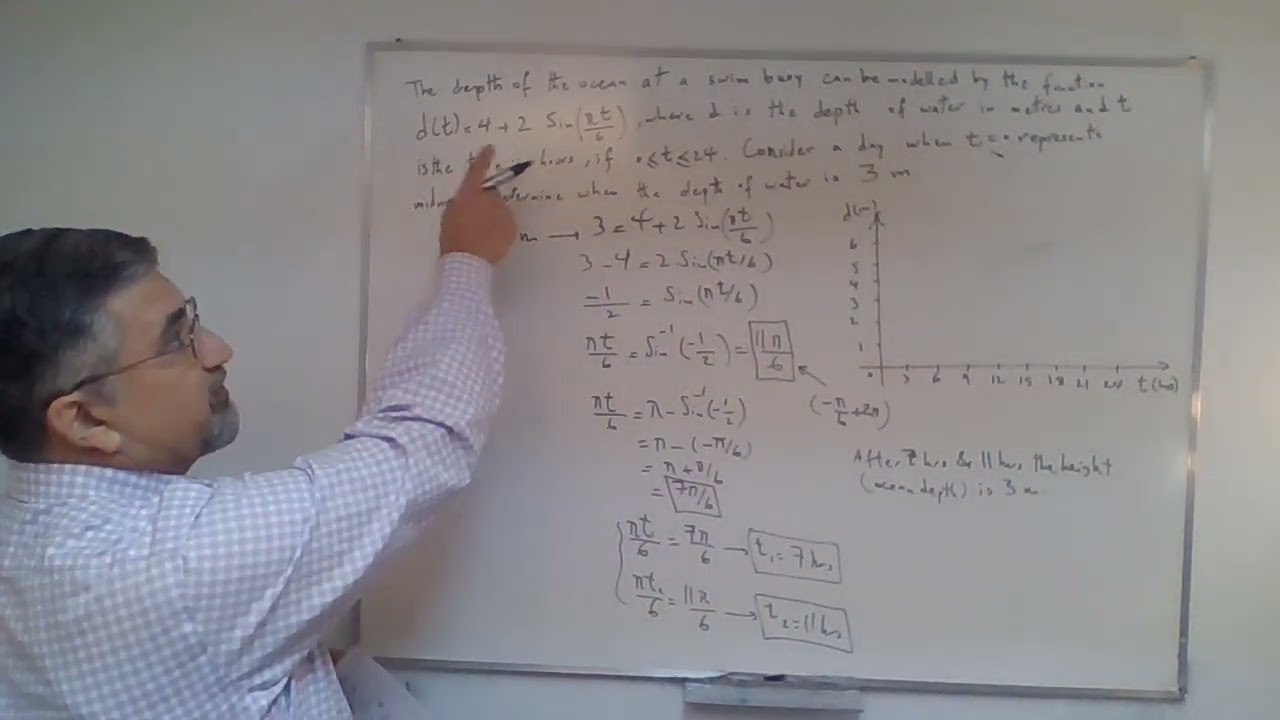 The depth of the ocean at a swim buoy can be modelled by the function
d(t) = 4 + 2 Sin(πt/6), where d is the depth of water in metres and t
is the hours, if 0 ≤ t ≤ 24. Consider a day when t = 0 represents
when the depth of water is 3 m
m → 3 = 4 + 2 Sin(πt/6)
3 - 4 = 2 Sin(πt/6)
-1/2 = Sin(πt/6)
πt/6 = Sin⁻¹(-1/2) = 11π/6
(-π/6 + 2π)
πt/6 = π - Sin⁻¹(-1/2)
= π - (-π/6)
= π + π/6
= 7π/6
πt/6 = 7π/6 → t₁ = 7 hrs
πt₂/6 = 11π/6 → t₂ = 11 hrs
d(m)
6
5
4
3
2
1
0 3 6 9 12 15 18 21 24 t(hrs)
After 7 hrs & 11 hrs the height
(ocean depth) is 3 m.